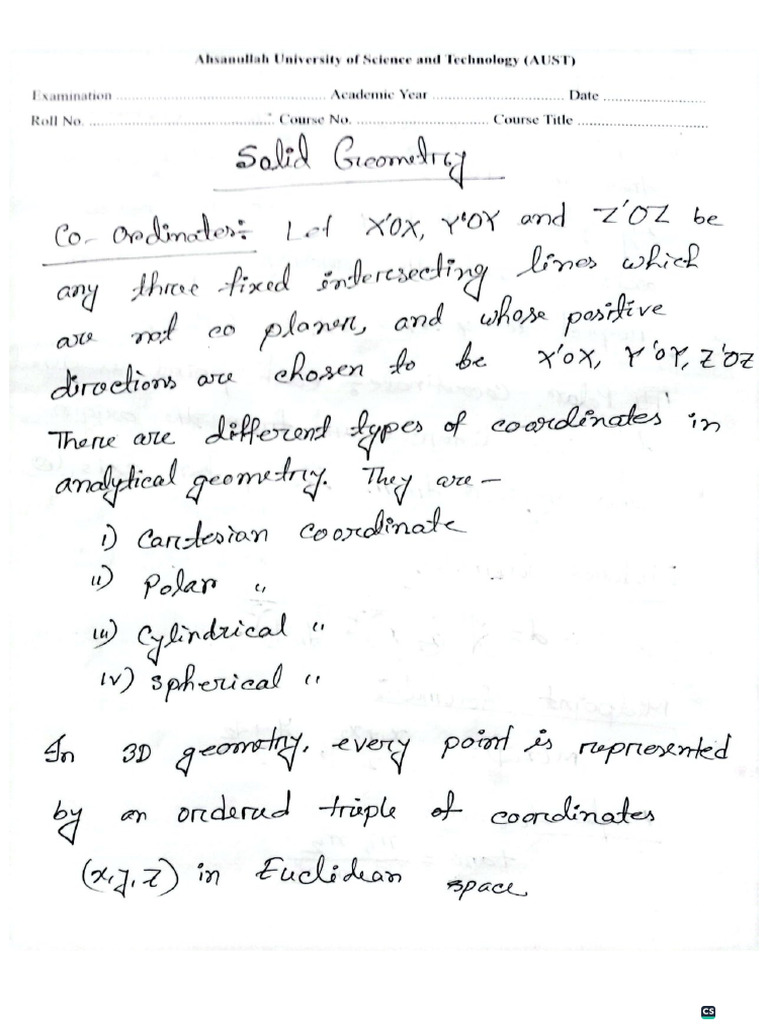 Ahsanullah University of Science and Technology (AUST)
Examination ........................ Academic Year ........................ Date ........................
Roll No. ........................ Course No. ........................ Course Title ........................
Solid Geometry
Co-ordinates:- Let X'OX, Y'OY and Z'OZ be
any three fixed interesecting lines which
are not co planer, and whose positive
directions are chosen to be X'OX, Y'OY, Z'OZ
There are different types of coordinates in
analytical geometry. They are —
i) Cartesian coordinate
ii) Polar "
iii) Cylindrical "
iv) Spherical "
In 3D geometry, every point is represented
by an ordered triple of coordinates
(x, y, z) in Euclidean space
CS